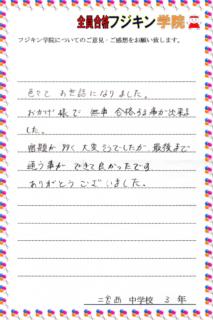 全員合格フジキン学院
フジキン学院についてのご意見・ご感想をお願い致します。
色々と お世話になりました。
おかげ様で 無事 合格する事が出来ま
した。
宿題が多く 大変そうでしたが、最後まで
通う事が できて良かったです。
ありがとう ございました。
二宮西 中学校 3 年